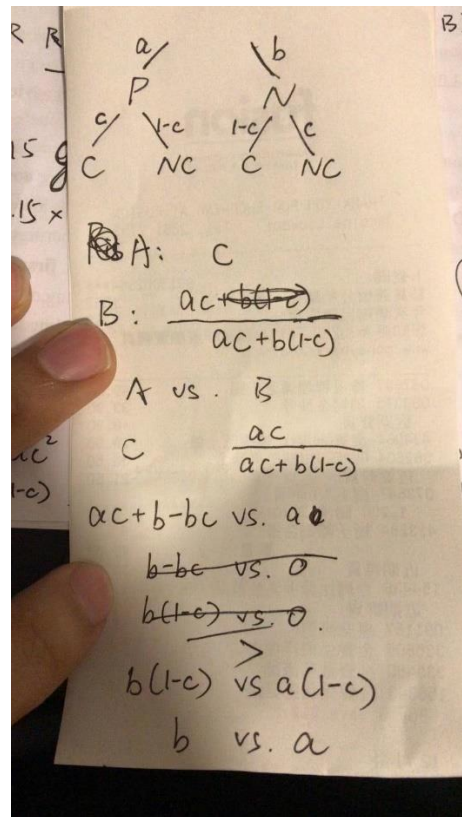 a b
P N
c 1-c 1-c c
C NC C NC
A: C
B: ac+b(1-c)
ac+b(1-c)
A vs. B
C ac
ac+b(1-c)
ac+b-bc vs. a
b-bc vs. 0
b(1-c) vs. 0.
>
b(1-c) vs a(1-c)
b vs. a
R R
15
.15 x
1-c)
B